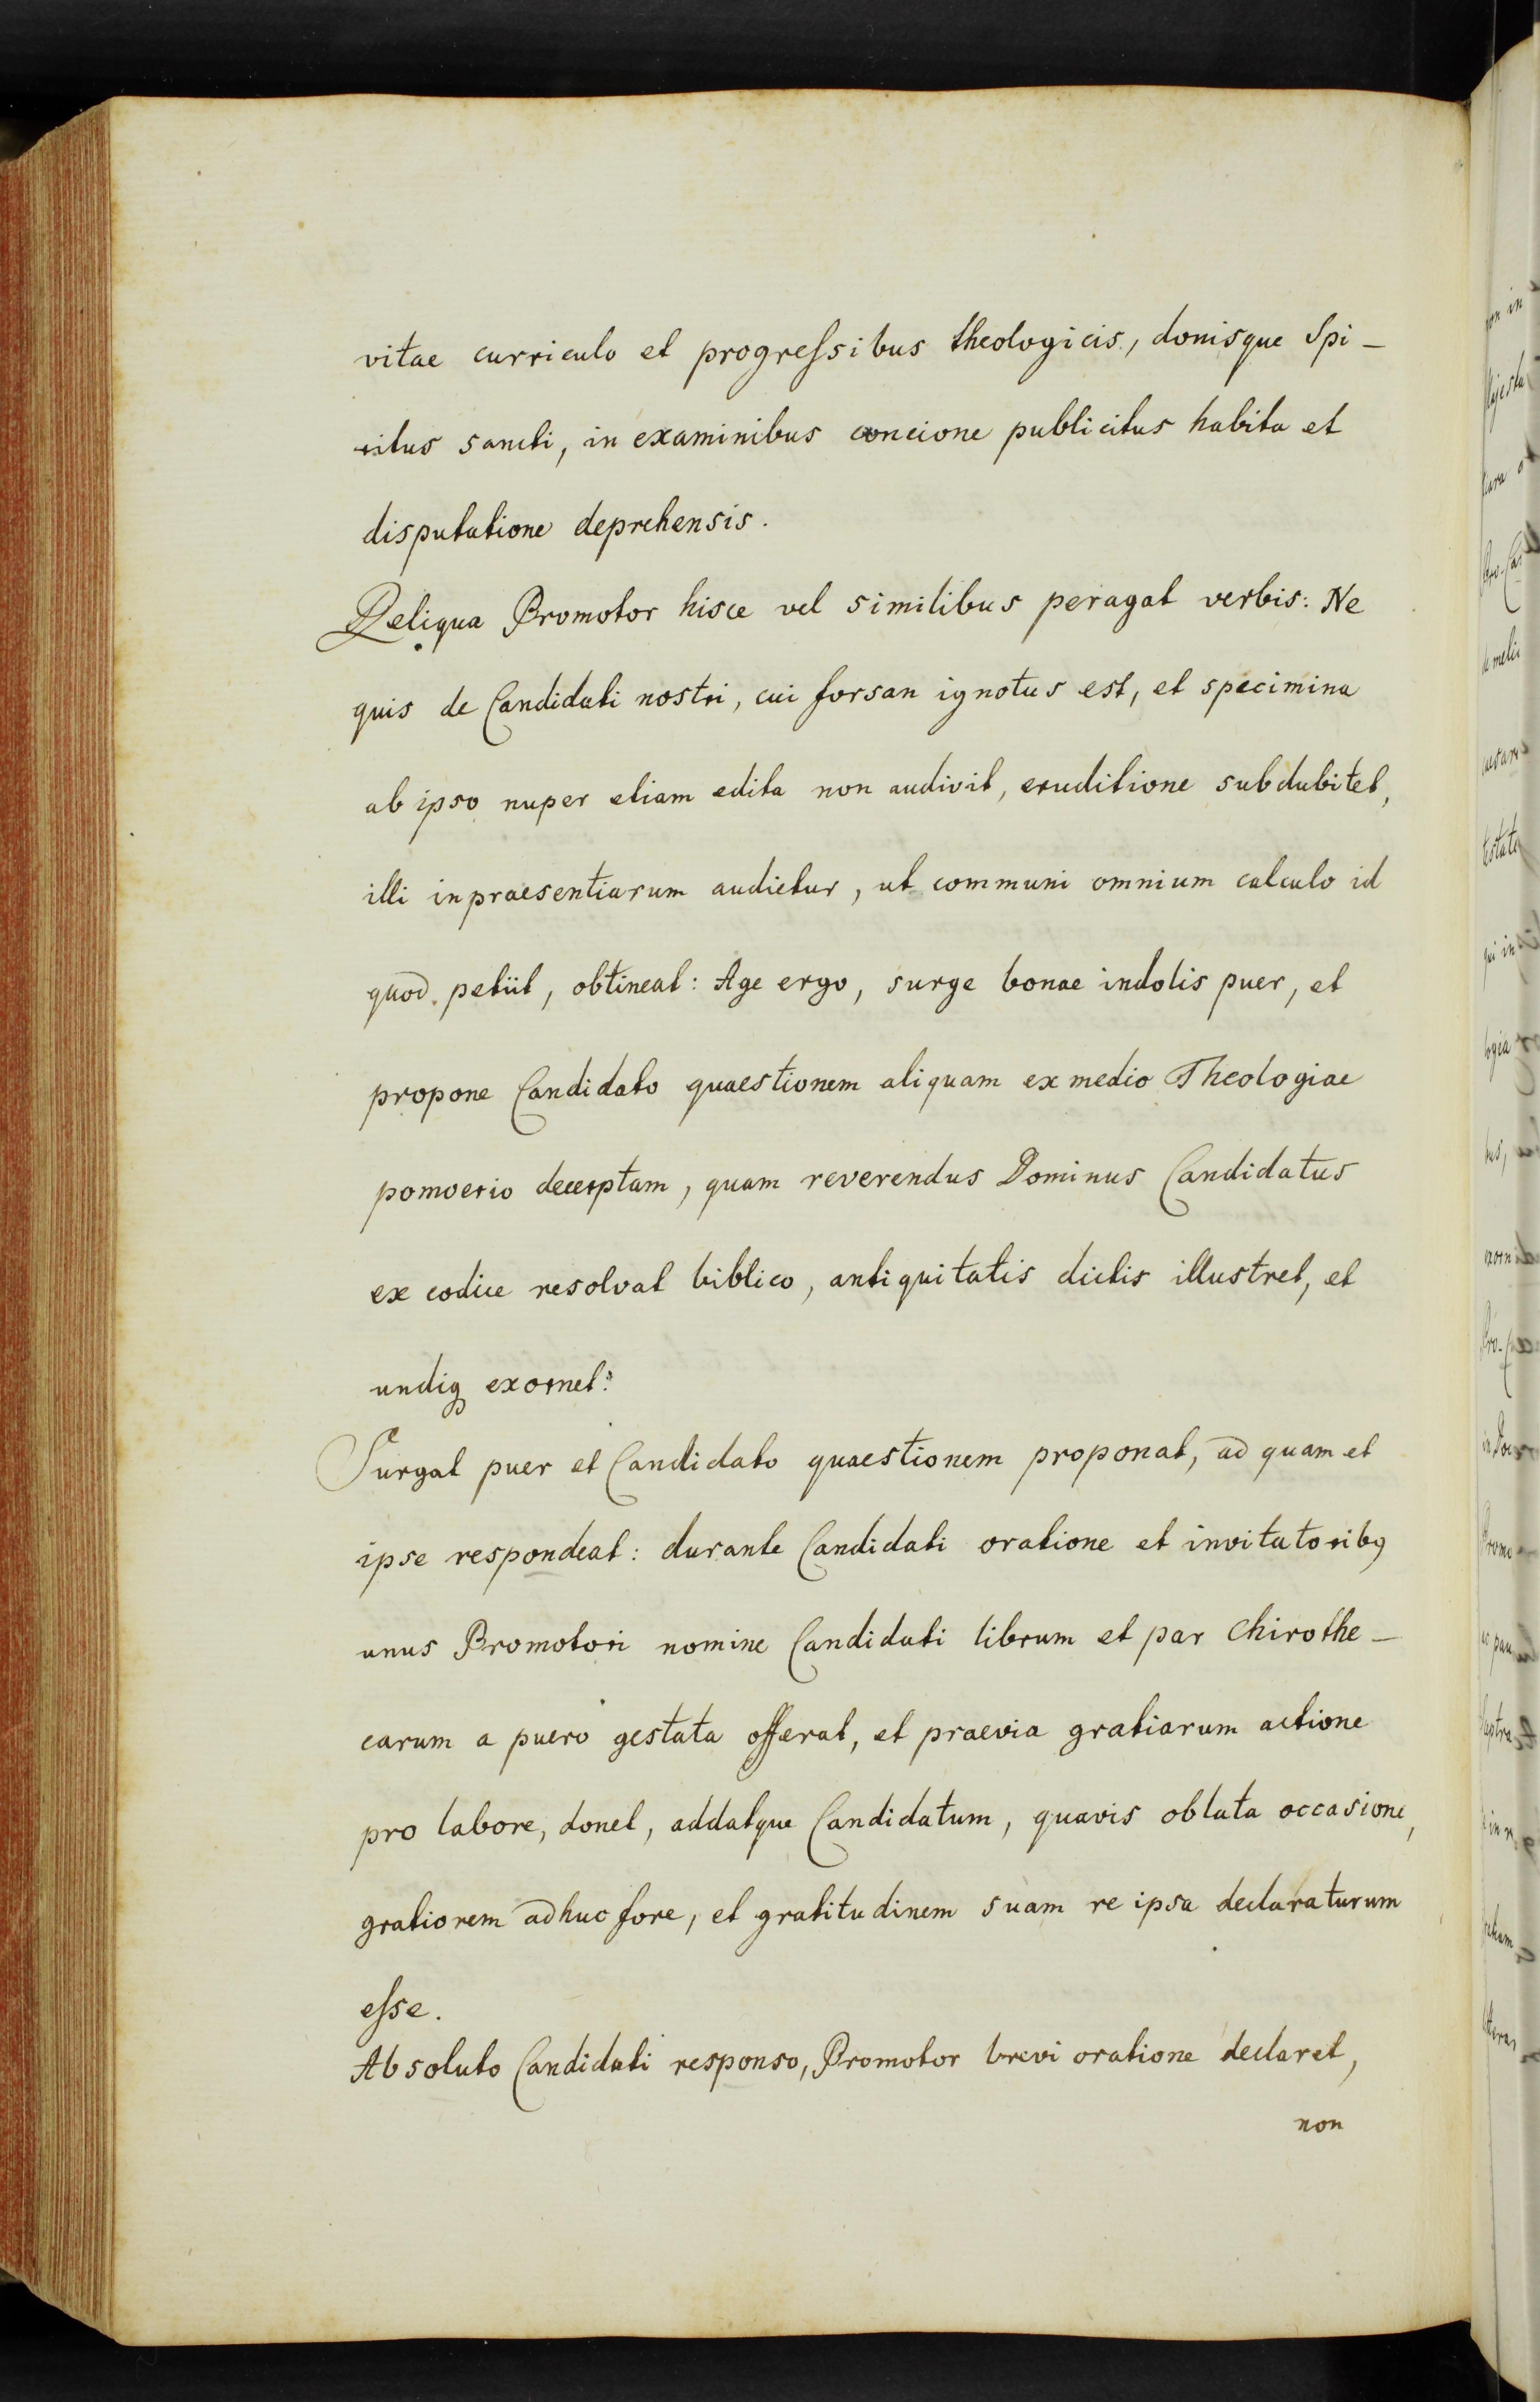 vitae curriculo et progreſsibus theologicis, donisque Spi-
ritus sancti, in examinibus concione publicitus habita et
disputatione deprehensis.
Reliqua Promotor hisce vel similibus peragat verbis: Ne
quis de Candidati nostri, cui forsan ignotus est, et specimina
ab ipso nuper etiam edita non audivit, eruditione subdubitet,
illi inpraesentiarum audietur, ut communi omnium calculo id
quod petiit, obtineat: Age ergo, surge bonae indolis puer, et
propone Candidato quaestionem aliquam ex medio Theologiae
pomoerio decerptam, quam reverendus Dominus Candidatus
ex codice resolvat biblico, antiquitatis dictis illustret, et
undiq exornet:
Surgat puer et Candidato quaestionem proponat, ad quam et
ipse respondeat: durante Candidati oratione et invitatoribꝰ
unus Promotori nomine Candidati librum et par chirothe-
carum a puero gestata offerat, et praevia gratiarum actione
pro labore, donet, addatque Candidatum, quavis oblata occasione,
gratiorem adhuc fore, et gratitudinem suam re ipsa declaraturum
eſse.
Absoluto Candidati responso, Promotor brevi oratione declaret,
non